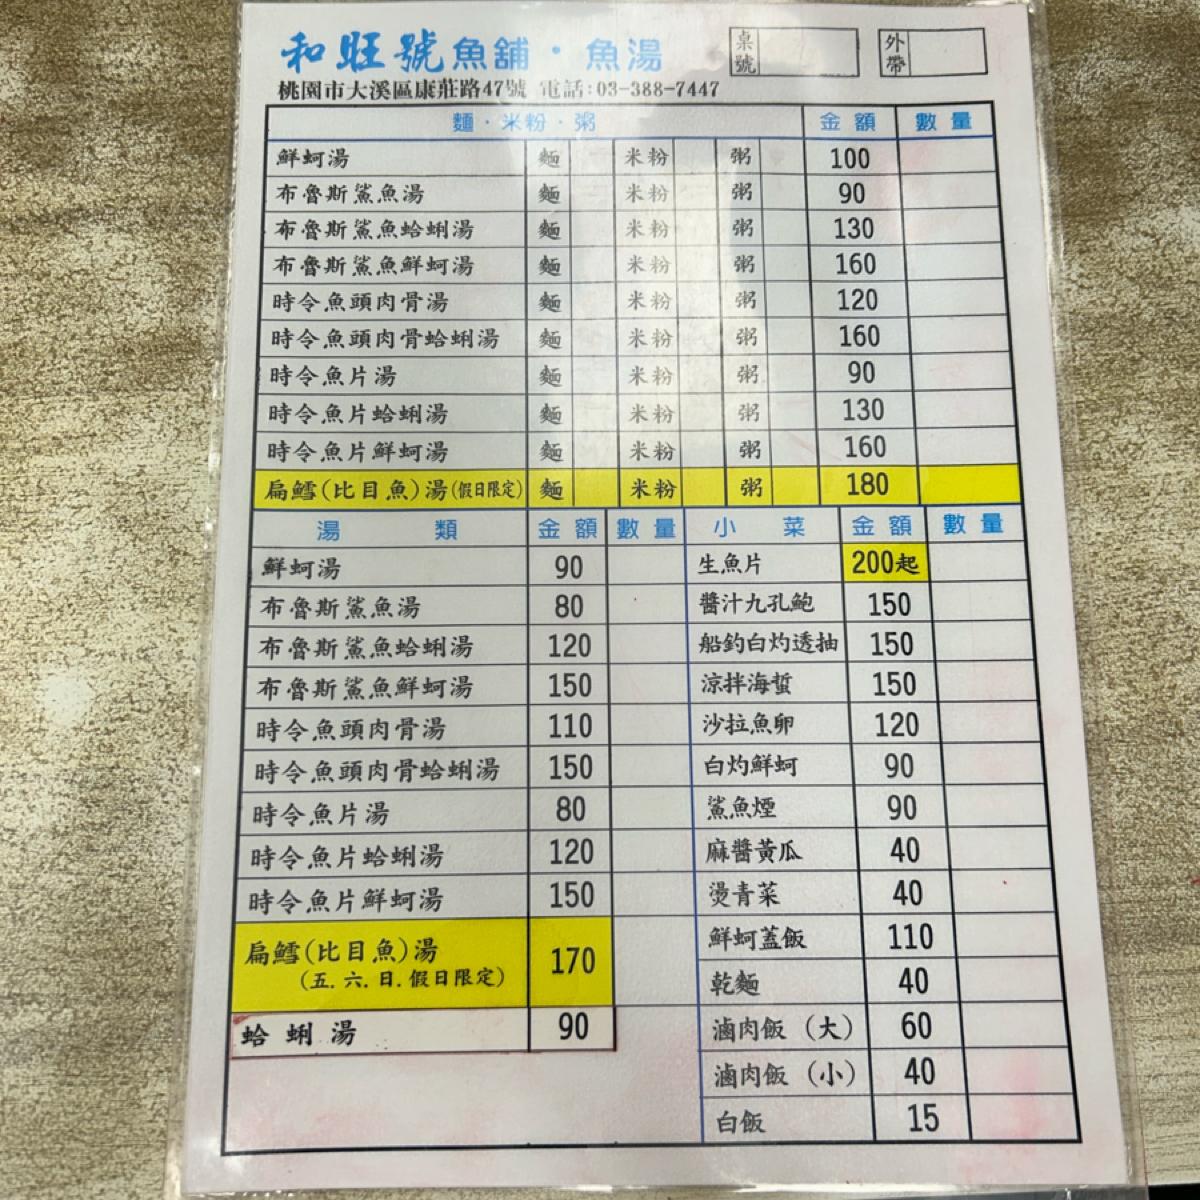 和旺號魚舖・魚湯
桌號
外帶
桃園市大溪區康莊路47號 電話:03-388-7447
麵・米粉・粥 金額 數量
鮮蚵湯 麵 米粉 粥 100
布魯斯鯊魚湯 麵 米粉 粥 90
布魯斯鯊魚蛤蜊湯 麵 米粉 粥 130
布魯斯鯊魚鮮蚵湯 麵 米粉 粥 160
時令魚頭肉骨湯 麵 米粉 粥 120
時令魚頭肉骨蛤蜊湯 麵 米粉 粥 160
時令魚片湯 麵 米粉 粥 90
時令魚片蛤蜊湯 麵 米粉 粥 130
時令魚片鮮蚵湯 麵 米粉 粥 160
扁鱈(比目魚)湯(假日限定) 麵 米粉 粥 180
湯類 金額 數量
鮮蚵湯 90
布魯斯鯊魚湯 80
布魯斯鯊魚蛤蜊湯 120
布魯斯鯊魚鮮蚵湯 150
時令魚頭肉骨湯 110
時令魚頭肉骨蛤蜊湯 150
時令魚片湯 80
時令魚片蛤蜊湯 120
時令魚片鮮蚵湯 150
扁鱈(比目魚)湯 170
(五.六.日.假日限定)
蛤蜊湯 90
小菜 金額 數量
生魚片 200起
醬汁九孔鮑 150
船釣白灼透抽 150
涼拌海蜇 150
沙拉魚卵 120
白灼鮮蚵 90
鯊魚煙 90
麻醬黃瓜 40
燙青菜 40
鮮蚵蓋飯 110
乾麵 40
滷肉飯(大) 60
滷肉飯(小) 40
白飯 15